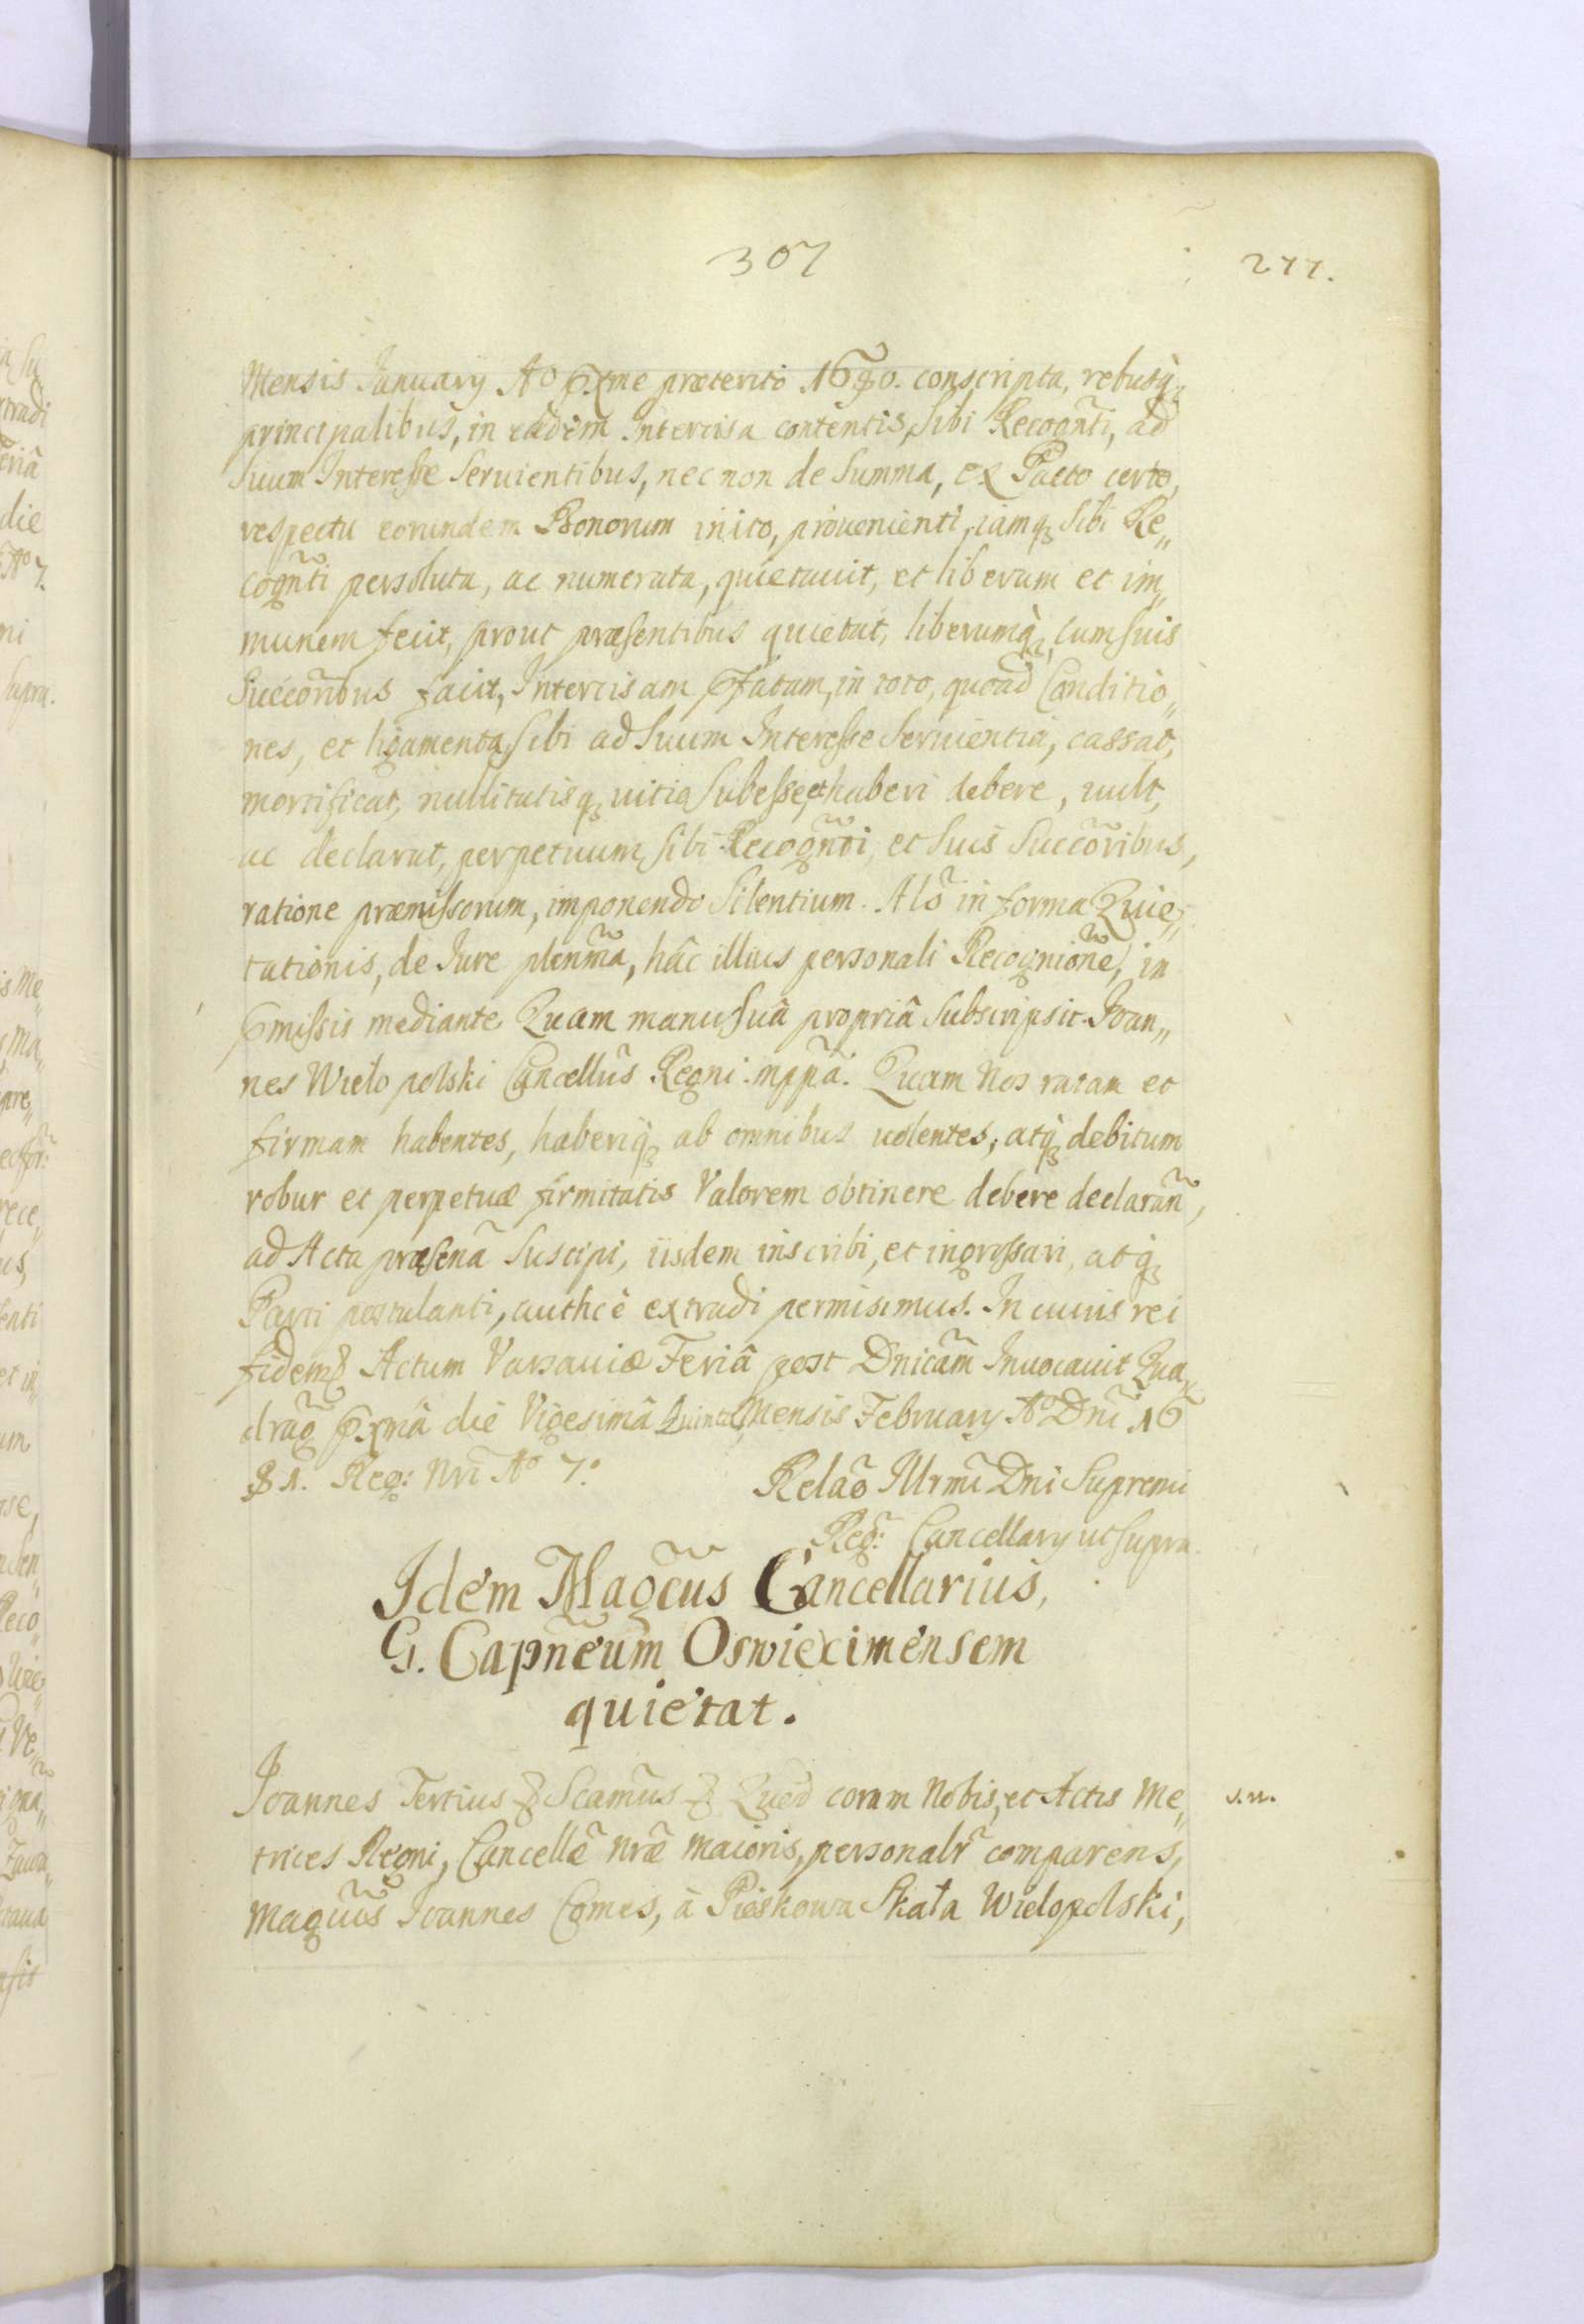 307
277.
Mensis January Ao pxme præterito 1680. conscripta, rebusq̀
principalibus, in eadem Intercisa contentis, sibi Recogñti, ad
suum Interesse seruientibus, nec non de summa, ex Pacto certo,
respectu eorundem Bonorum inito, prouenienti, iamq̨ sibi Re„
cogñti persoluta, ac numerata, quietauit, et liberum et im„
munem fecit, prout præsentibus quietat, liberumq̀, cum suis
Succõribus facit, Intercisam pfatam, in toto, quoad Conditio„
nes, et ligamenta, sibi ad suum Interesse seruientia, cassat,
mortificat, nullitatisq̨ uitio subesse, et haberi debere, uult,
ac declarat, perpetuum, sibi Recogñti, et suis Succõribus,
ratione præmissorum, imponendo silentium. Alõ in forma Quie„
tationis, de Iure pleñma, hâc illius personali Recogniõne, in
pmissis mediante Quam manu suâ propriâ subscripsit. Ioan„
nes Wielo polski Cancellũs Regni. mppã. Quam Nos ratam et
firmam habentes, haberiq̀ ab omnibus uolentes, atq̀ debitum
robur et perpetuæ firmitatis Valorem obtinere debere declarañ,
ad Acta præsenã suscipi, iisdem inscribi, et ingrossari, atq̀
Parti postulanti, authcè extradi permisimus. In cuius rei
fidem & Actum Varsauiæ Feriâ post Dnicãm Inuocauit Qua„
drag̃ pxmâ die Vigesimâ Quinta, Mensis February Ao Dñi 16
81. Reg: Nri Ao 7.o
Relaõ Illrmi Dni Supremi
Reg: Cancellary ut supra.
Idem Magcũs Cancellarius,
G. Capñeum Oswiecimensem
quietat.
Ioannes Tertius & Scamũs & Quod coram Nobis, et Actis Me„
s.n.
trices Regni, Cancellæ̃ nræ̃ maioris, personalr̃ comparens,
Magcũs Ioannes Comes, à Pieskowa Skała Wielopolski,